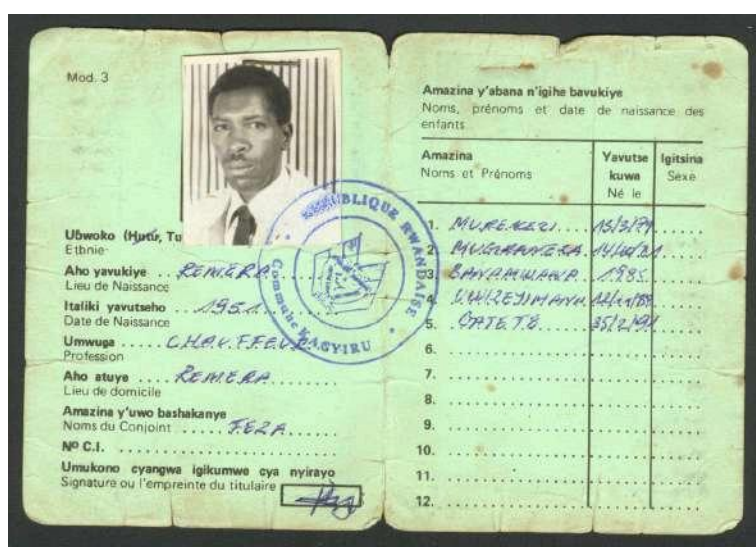 Mod. 3
Ubwoko (Hutu, Tu
Ethnie
Aho yavukiye REMERA
Lieu de Naissance
Italiki yavutseho 1951
Date de Naissance
Umwuga CHAUFFEUR
Profession
Aho atuye REMERA
Lieu de domicile
Amazina y'uwo bashakanye
Noms du Conjoint FEZA
Nº C.I.
Umukono cyangwa igikumwe cya nyirayo
Signature ou l'empreinte du titulaire
REPUBLIQUE RWANDAISE
Commune KACYIRU
Amazina y'abana n'igihe bavukiye
Noms, prénoms et date de naissance des
enfants
Amazina Yavutse Igitsina
Noms et Prénoms kuwa Sexe
Né le
1. MUREKEZI
2.
3. 1985
4. UWIZEJIMANA
5. GATETE
6.
7.
8.
9.
10.
11.
12.